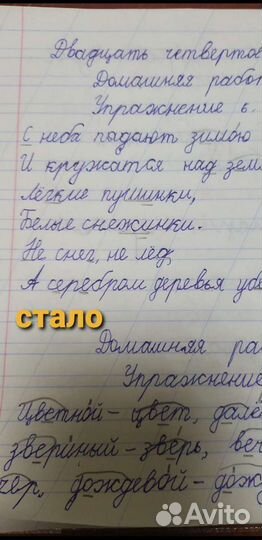 Двадцать четвертое
Домашняя работ
Упражнение 6.
С неба падают зимою
И кружатся над зем
Лёгкие пушинки,
Белые снежинки.
Не снег, не лёд,
А серебром деревья убе
стало
Домашняя ра
Упражнение
Цветной – цвет, далё
звериный – зверь, веч
чер, дождевой – дож
Avito